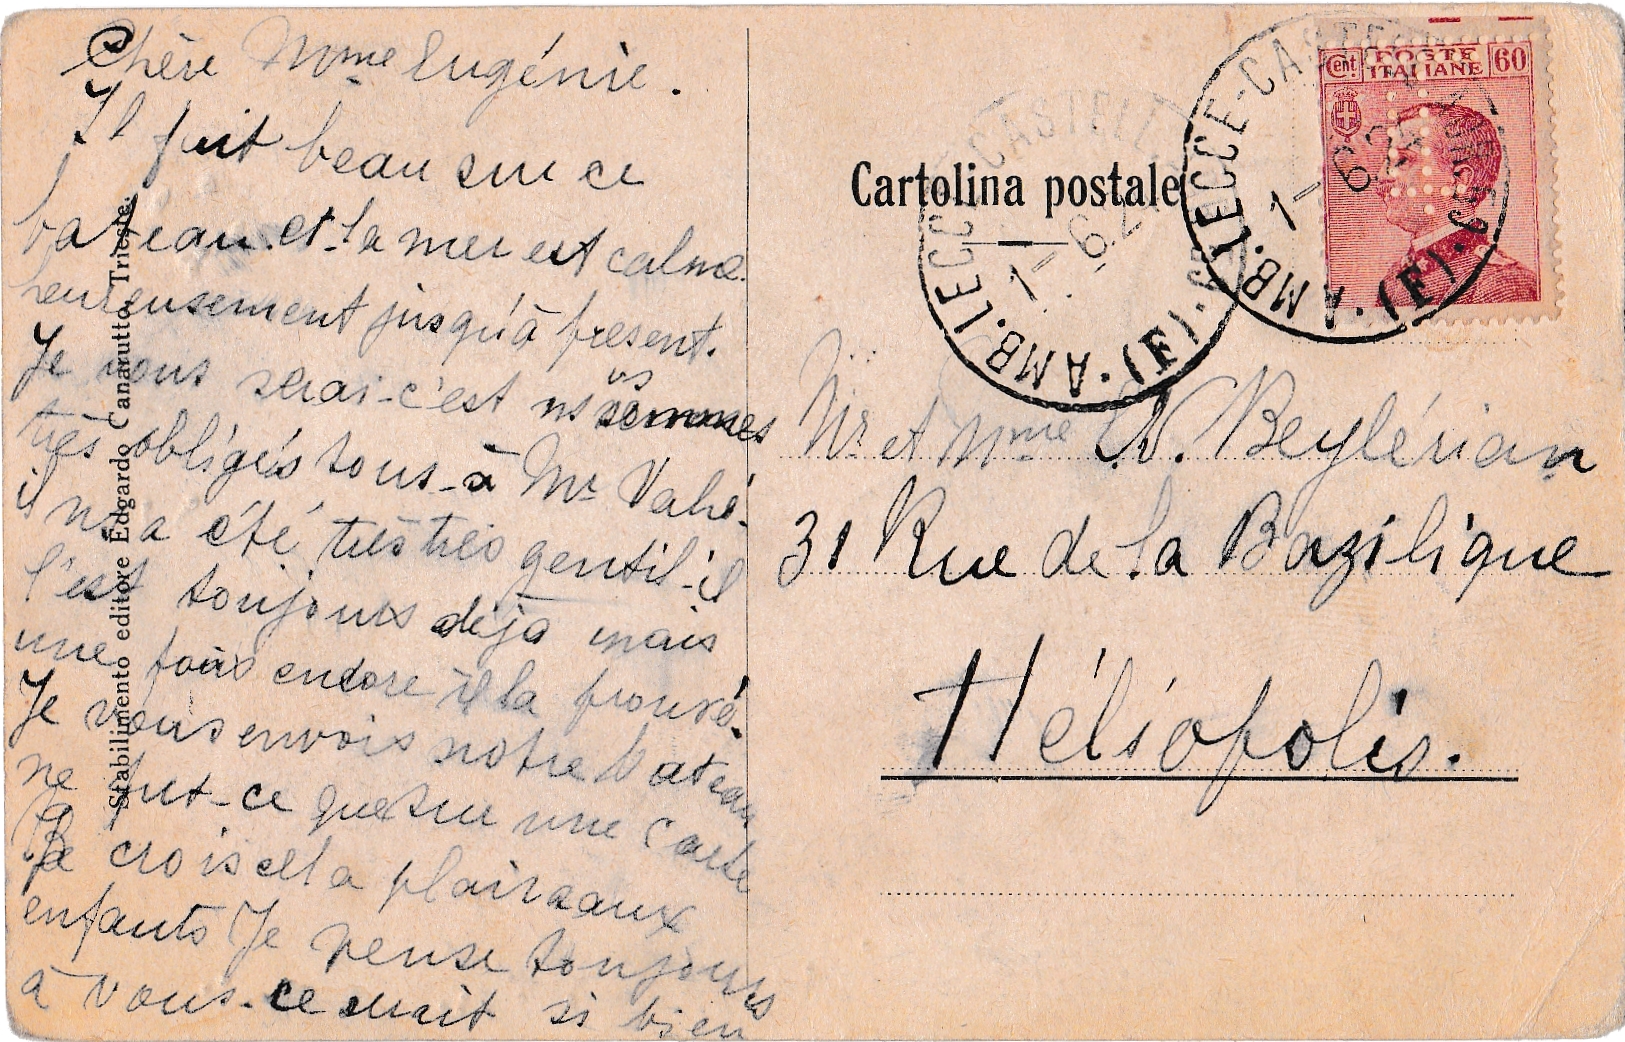 Chère Mme Eugénie.
Il fait beau sur ce
bateau et la mer est calme
heureusement jusqu'à present.
Je vous serai-c'est ns
vs
sommes
très obligés tous-à Mr Vahé.
il ns a été très très gentil-il
l'est toujours déja mais
une fois encore il la prouvé.
Je vous envois notre bateau
ne fut-ce que sur une carte
Je crois cela plaira aux
enfants Je pense toujours
à vous-ce si bien
Stabilimento editore Edgardo Canarutto, Trieste.
Cartolina postale
Cent. POSTE ITALIANE 60
AMB. LECCE-CASTE
(F).
1-6
AMB. LECCE-CASTE
(F).
1-6.2
Mr et Mme N. Beylérian
31 Rue de la Bazilique
Héliopolis.